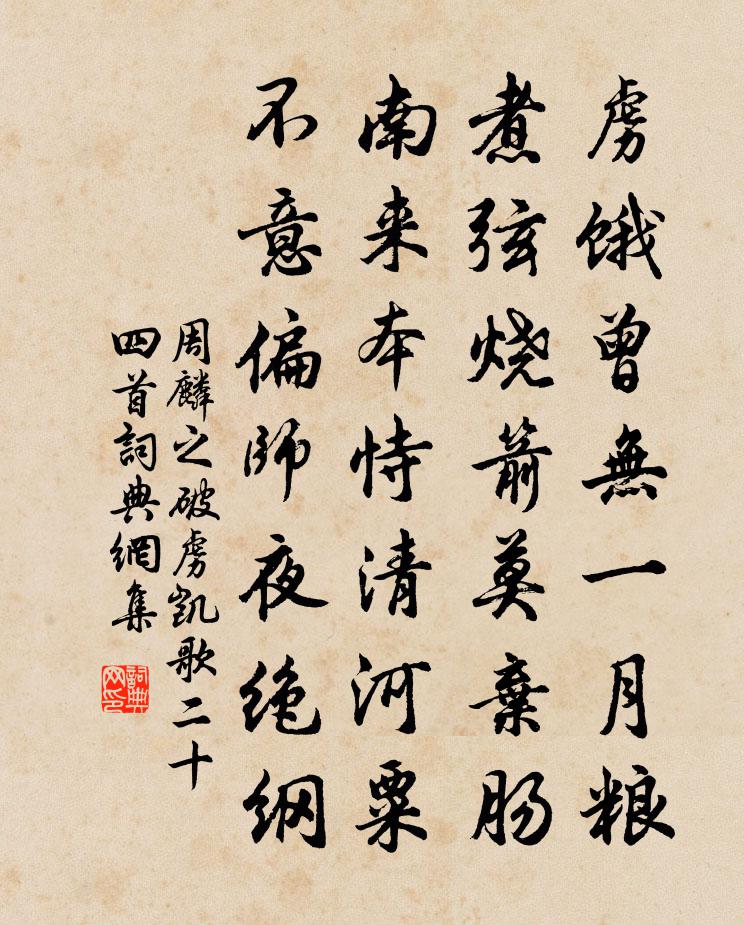 虏饿曾無一月粮
煮弦烧箭莫棄肠
南来本恃清河粟
不意偏師夜绝纲
周麟之破虏凯歌二十
四首詞典網集
詞典网印